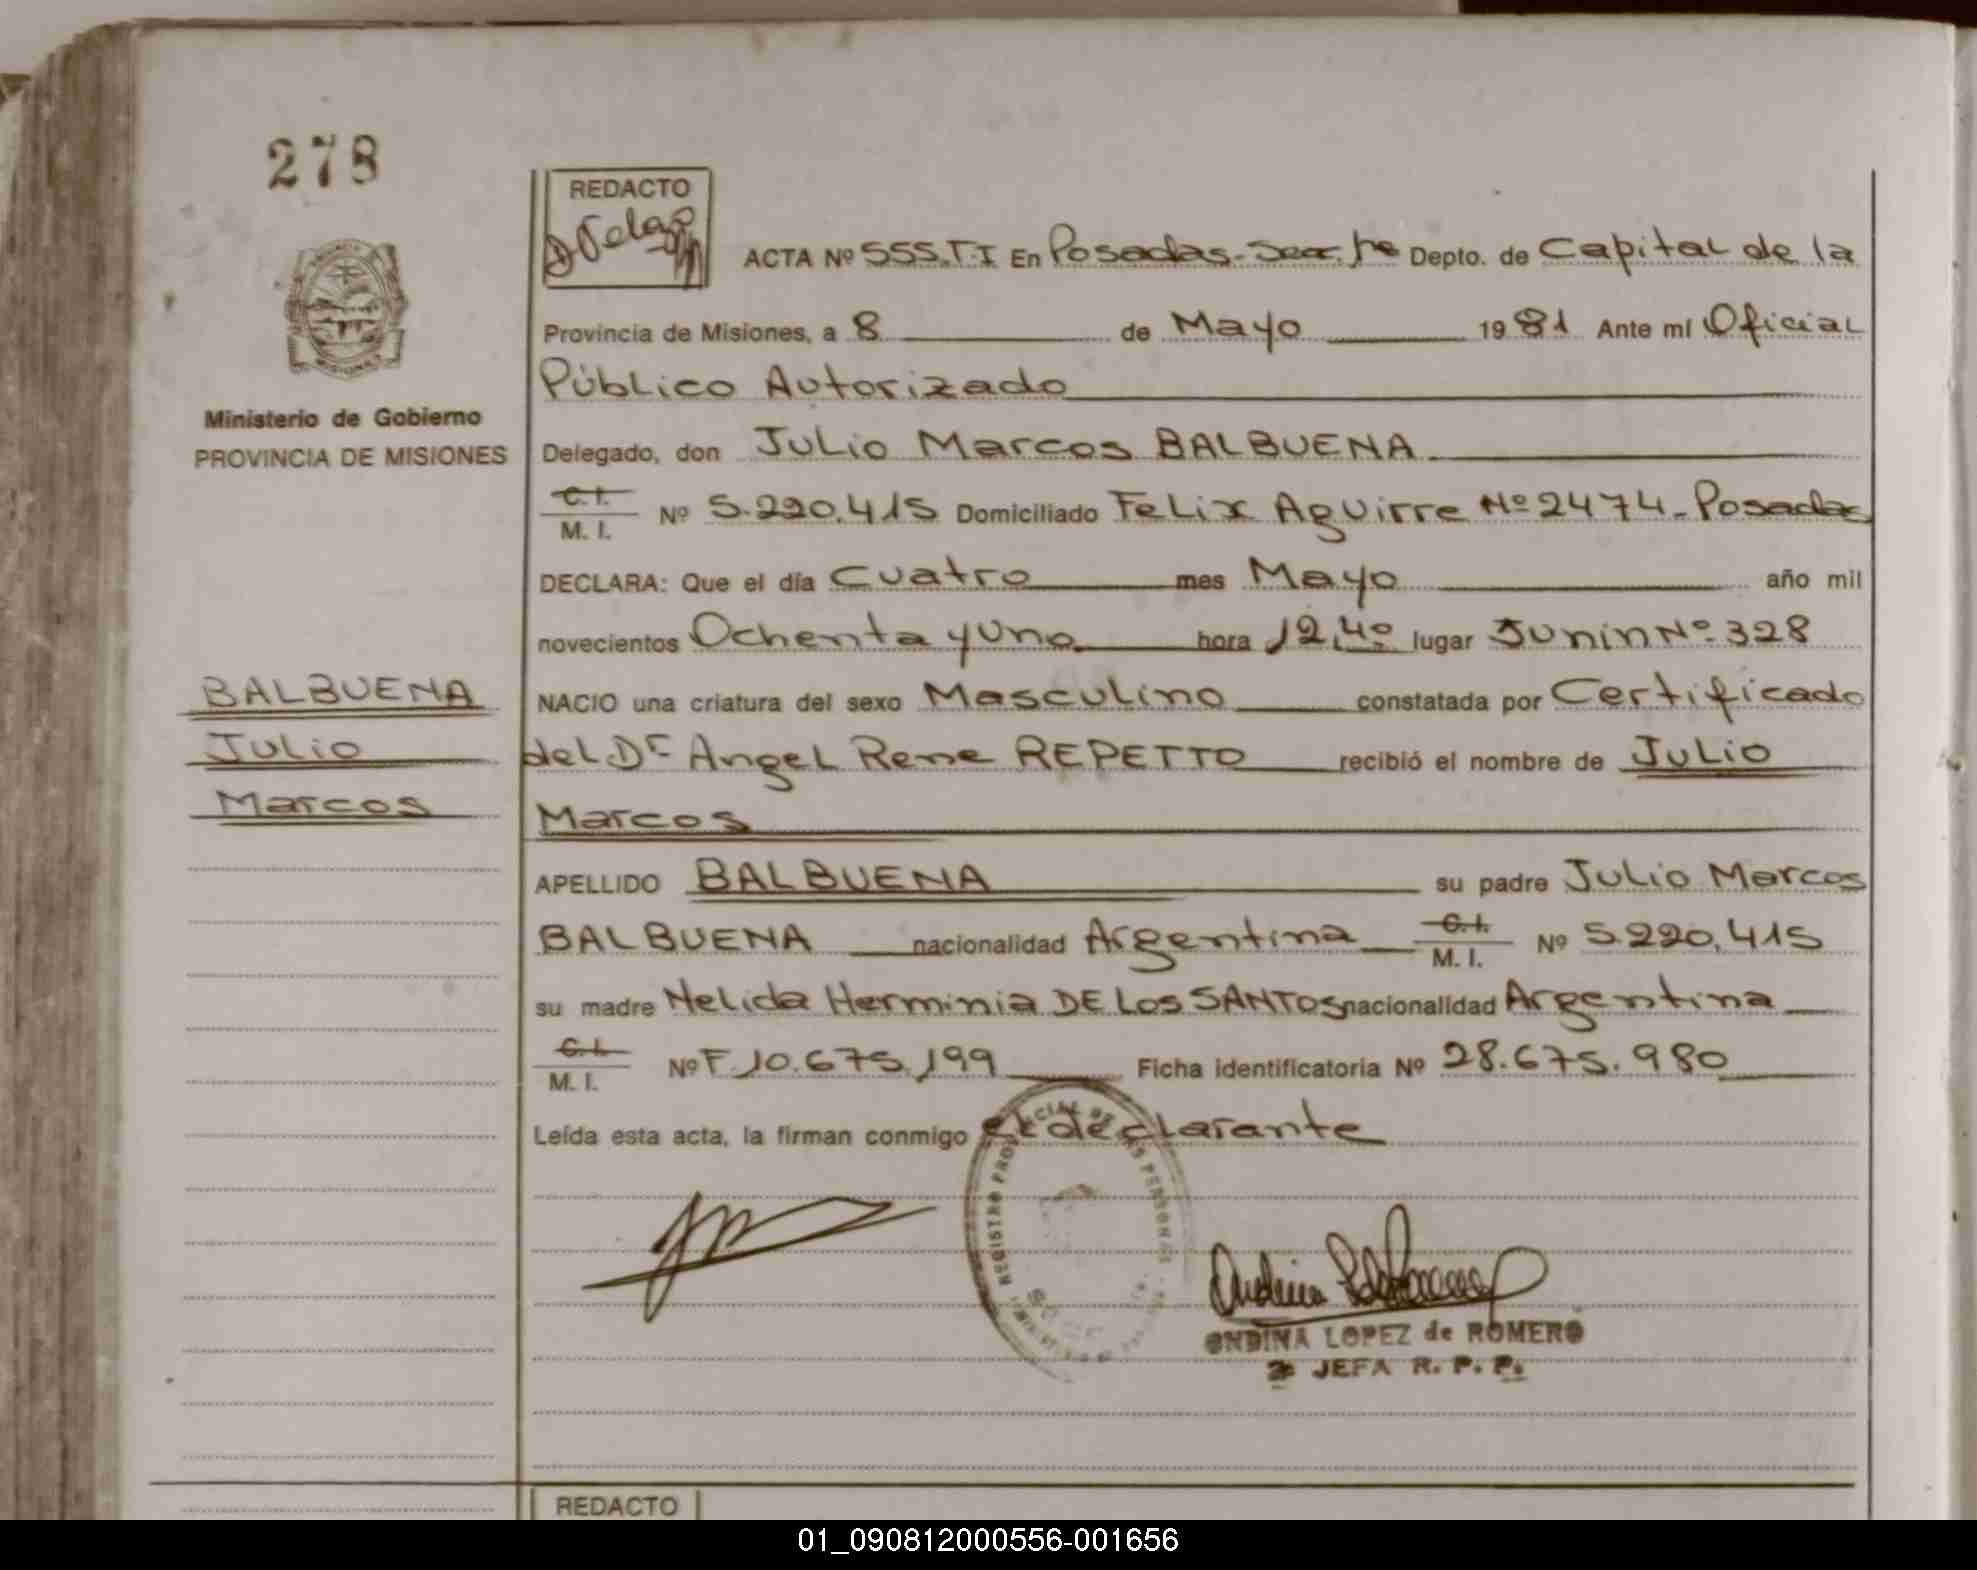 278
REDACTO
ACTA Nº 555.T.I En Posadas-Secc. 1ra Depto. de Capital de la
Provincia de Misiones, a 8 de Mayo 1981 Ante mí Oficial
Público Autorizado
Ministerio de Gobierno
PROVINCIA DE MISIONES
Delegado, don Julio Marcos BALBUENA
C.I.
M. I. Nº 5.220.415 Domiciliado Felix Aguirre Nº 2474-Posadas
DECLARA: Que el día Cuatro mes Mayo año mil
novecientos Ochenta y Uno hora 12,40 lugar Junin Nº 328
BALBUENA
Julio
Marcos
NACIO una criatura del sexo Masculino constatada por Certificado
del Dr Angel Rene REPETTO recibió el nombre de Julio
Marcos
APELLIDO BALBUENA su padre Julio Marcos
BALBUENA nacionalidad Argentina C.I. M. I. Nº 5.220.415
su madre Nelida Herminia DE LOS SANTOS nacionalidad Argentina
C.I.
M. I. Nº F.10.675.199 Ficha identificatoria Nº 28.675.980
Leída esta acta, la firman conmigo el declarante
REGISTRO PROVINCIAL DE LAS PERSONAS
ONDINA LOPEZ de ROMERO
JEFA R. P. P.
REDACTO
01_090812000556-001656